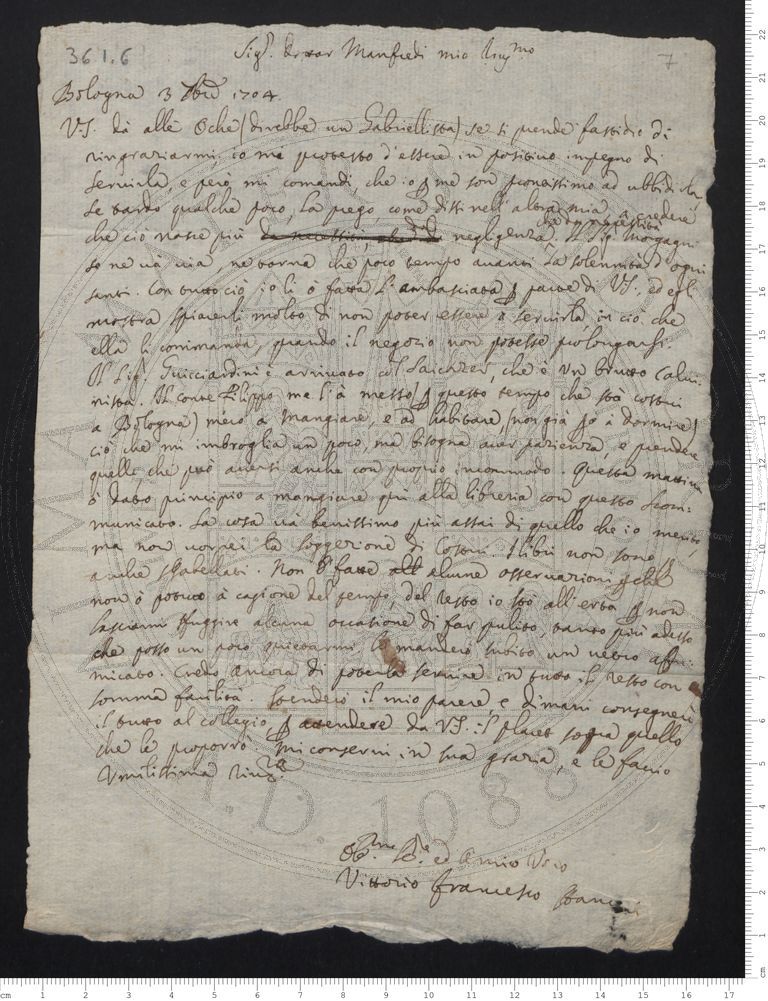 361.6
7
Sig.r Dottor Manfredi mio Sig.mo
Bologna 3 1704
V.S. dà alle Oche (direbbe un Gabriellista) se si prende fastidio di
ringraziarmi, io mi protesto d'essere in positivo impegno di
servirla, e però mi comandi, che io p me son prontissimo ad ubbidirla
Se tardo qualche poco, la prego, come dissi nell'altra mia, a credere
che ciò nasce più da necessità, che da negligenza. Il Sig. Morgagni
se ne và via, ne torna che poco tempo avanti la solennità d'ogni
santi. Con tutto ciò io li ò fatta l'ambasciata p parte di V.S., ed egli
mostra spiacerli molto di non poter essere à servirla in ciò che
ella li commanda, quando il negozio non potesse prolongarsi.
Il Sig. Guicciardini è arrivato col Saichzer, che è un brutto Calui-
nista. Il conte Filippo me l'à messo (p questo tempo che stà costui
a Bologna) meco a Mangiare, e ad habitare (non già po à dormire)
ciò che mi imbroglia un poco, ma bisogna aver pazienza, e prendere
quello che può aversi anche con proprio incommodo. Questa mattina
ò dato principio a mangiare qui alla libreria con questo Scom-
municato. La cosa và benissimo più assai di quello che io merito,
ma non vorrei la soggezione di Costui. I libri non sono p
anche sgabellati. Non ò fatte alcune osservazioni p che
non ò potuto à cagione del tempo, del resto io stò all'erta p non
lasciarmi sfuggire alcuna occasione di far pulito, tanto più adesso
che posso un poco quietarmi. Le manderò subito un vetro affu-
micato. Credo ancora di poterla servire in tutto il resto con
somma facilità. Stenderò il mio parere e dimani consegnerò
il tutto al collegio p attendere da V.S. il placet sopra quello
che le proporrò. Mi conservi in sua grazia, e le faccio
Umilissima
ed Amico Vero
Vittorio Francesco Stancari